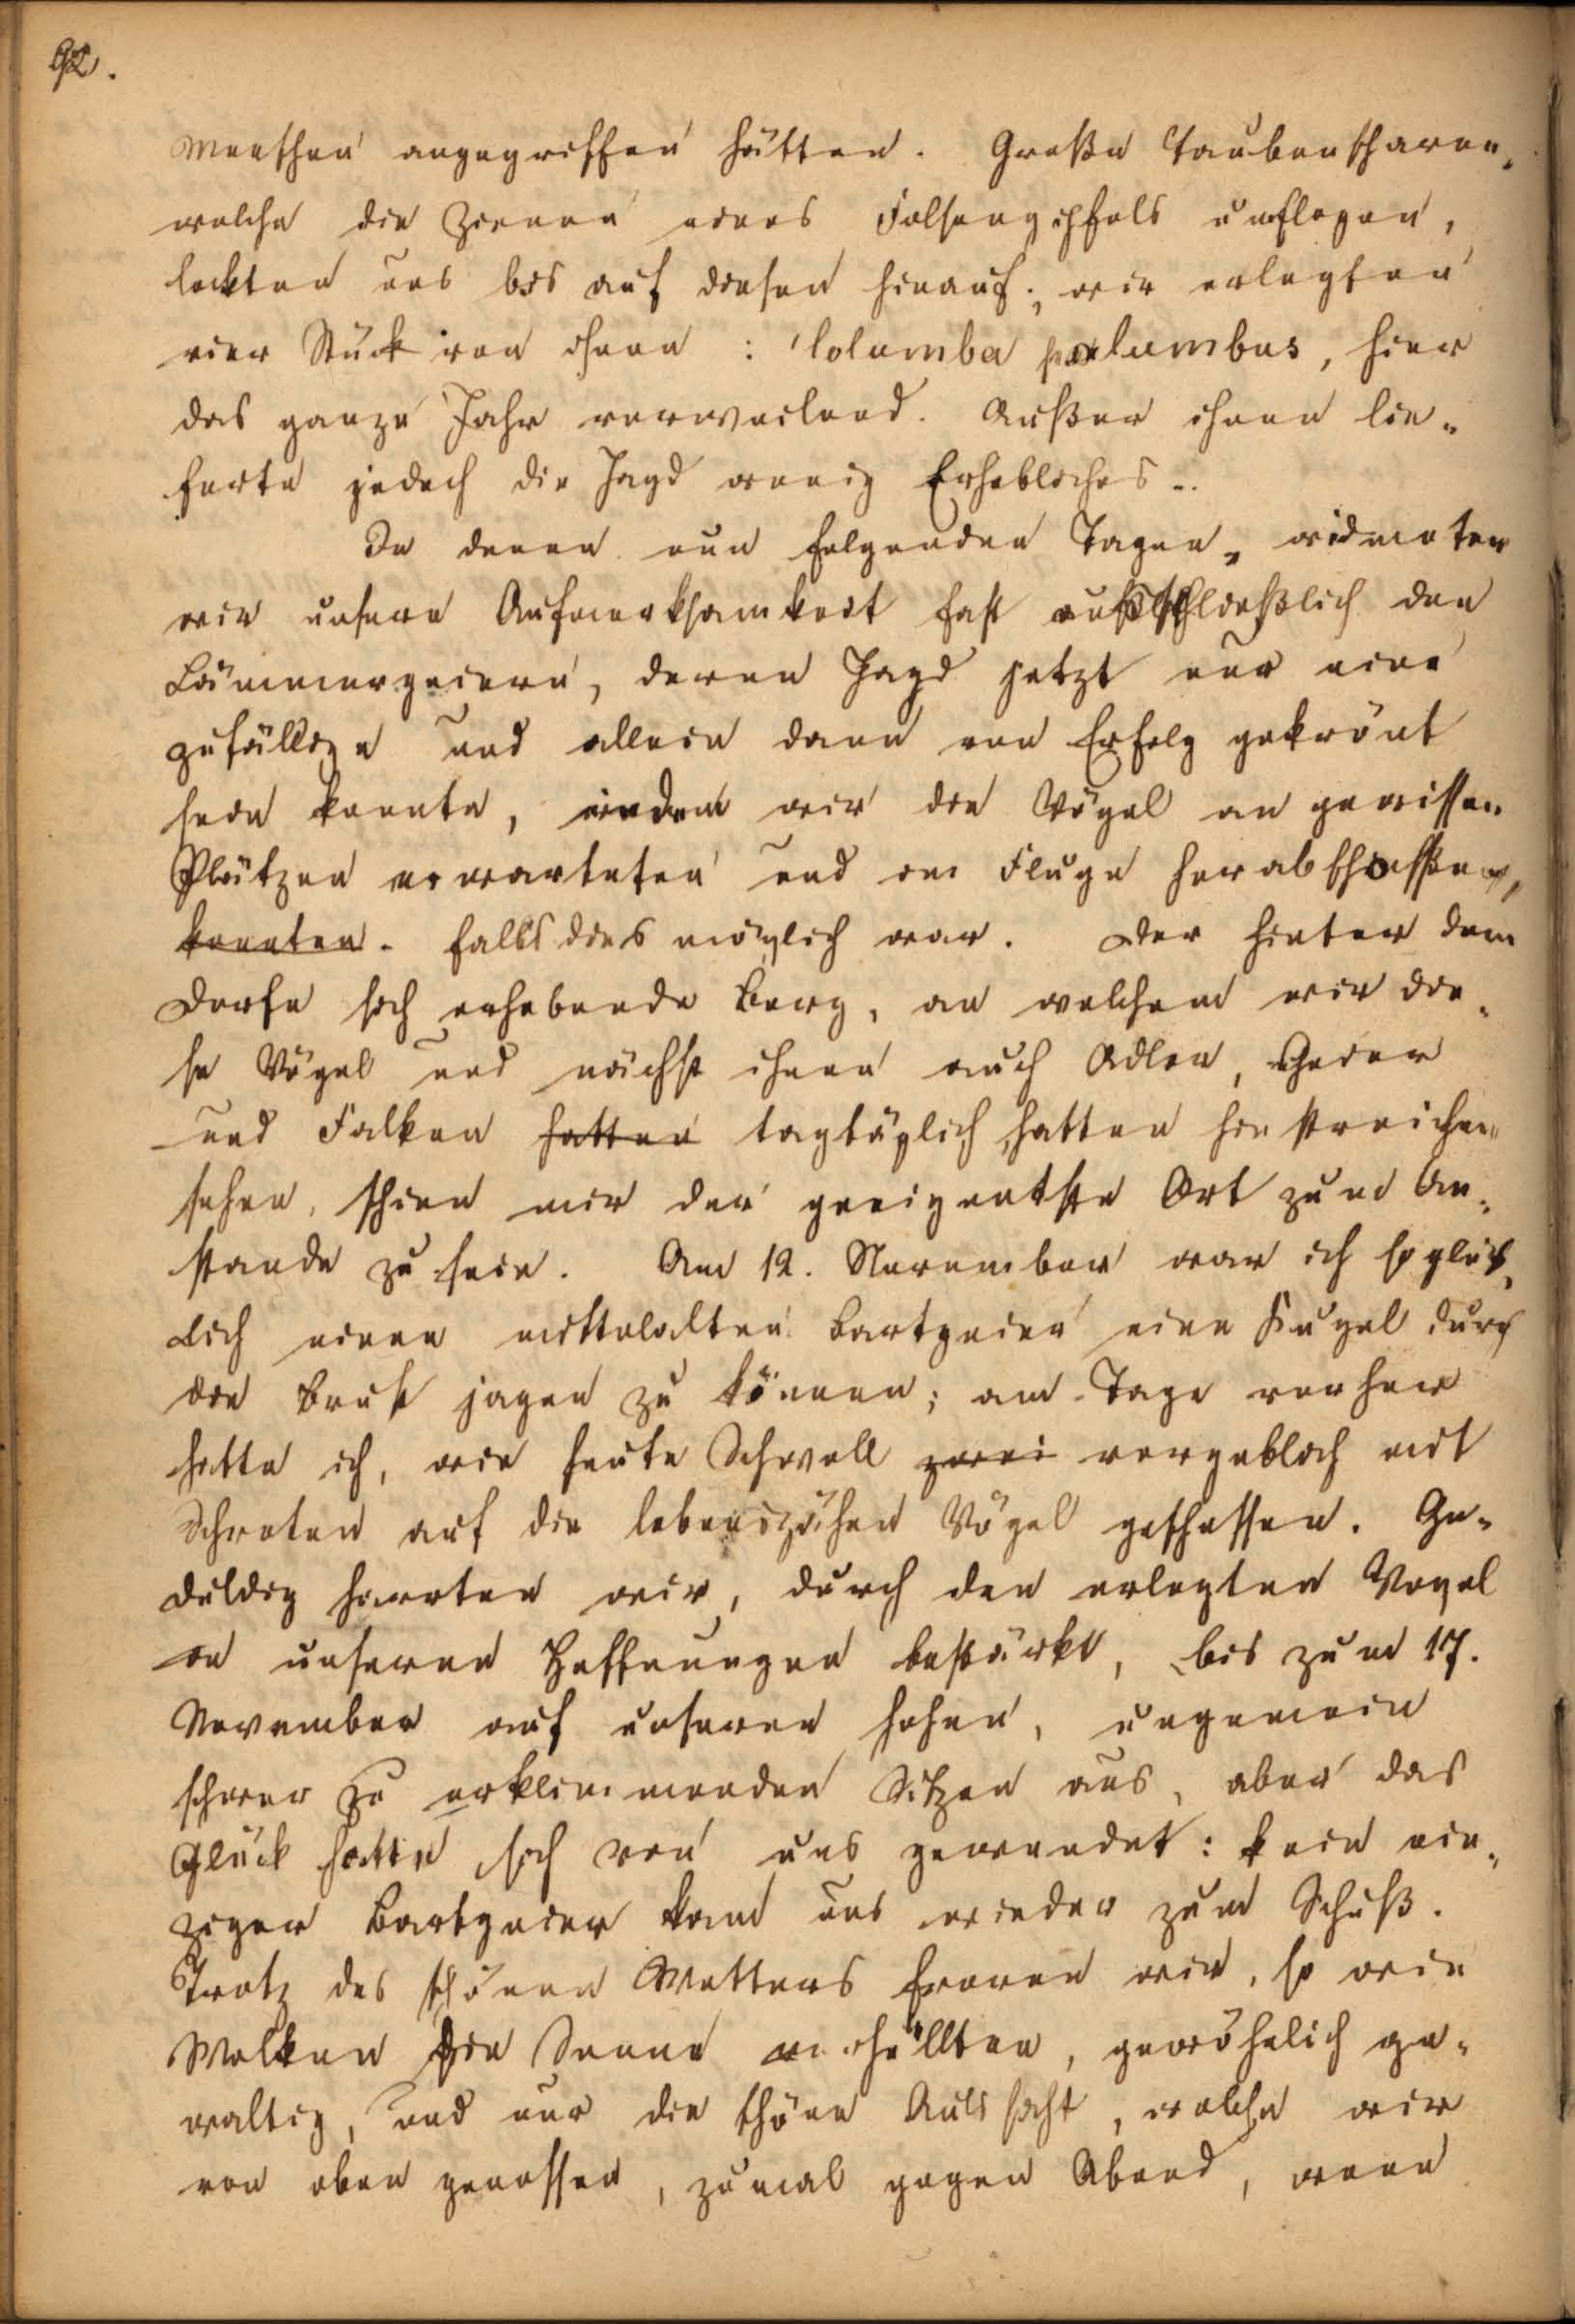 92.
Menschen angegriffen hätten. Große Taubenscharen,
welche die Zinnen eines Felsengipfels umflogen,
lockten uns bis auf diesen hinauf; wir erlegten
vier Stück von ihnen: Columba palumbus, hier
das ganze Jahr verweilend. Außer ihnen lie-
ferte jedoch die Jagd wenig Erhebliches.
In denen nun folgenden Tagen, widmeten
wir unsere Aufmerksamkeit fast ausschließlich den
Lämmergeiern, deren Jagd jetzt nur eine
zufällige und allein dann von Erfolg gekrönt
sein konnte, indem wir die Vögel an gewissen
Plätzen erwarteten und im Fluge herabschossen,
konnten. falls dies möglich war. Der hinter dem
Dorfe sich erhebende Berg, an welchem wir die-
se Vögel und nächst ihnen auch Adler, Geier
und Falken hatten tagtäglich hatten hinstreichen
sehen, schien mir der geeignetste Ort zum An-
stande zu sein. Am 12. November war ich so glück-
lich einen mittelalten Bartgeier eine Kugel durch
die Brust jagen zu können; am Tage vorher
hatte ich, wie heute Schwoll zwei vergeblich mit
Schroten auf die lebenszähen Vögel geschossen. Ge-
duldig harrten wir, durch den erlegten Vogel
in unseren Hoffnungen bestärkt, bis zum 17.
November auf unseren hohen, ungemein
schwer zu erklimmenden Sitzen aus, aber das
Glück hatte sich von uns gewendet: kein ein-
ziger Bartgeier kam uns wieder zum Schuß.
Trotz des schönen Wetters froren wir, so wie
Wolken die Sonne verhüllten, gewöhnlich ge-
waltig, und nur die schöne Aussicht, welche wir
von oben genossen, zumal gegen Abend, wenn